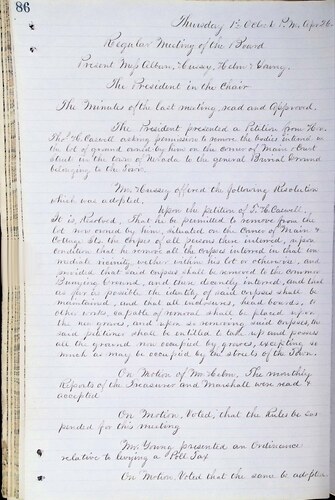 86
Thursday 1st Octob
Regular Meeting of the Board
Present Messs Alban, Hussey, Helm & Young.
The President in the Chair
The Minutes of the last meeting read and Approved.
The President presented a Petition from Hon.
Thos H. Caswell asking permission to remove the bodies interred on
the lot of ground owned by him on the corner of Main & Court
Street in the town of Nevada to the general Burial Ground
belonging to the Town.
Mr. Hussey offered the following Resolution
which was adopted,
Upon the petition of T. H. Caswell,
It is, Resolved, That he be permitted to remove from the
lot now owned by him, situated on the Corner of Main &
College Sts the Corps of all persons there interred, upon
condition that he remove all the Corpses interred in that im
mediate vicinity, within his lot or otherwise, and
provided that said Corpses shall be removed to the Common
Burying Ground, and there decently interred, and that
as far as possible the identity of said Corpses shall be
maintained, and that all inclosures, head boards, &
other works, capable of removal shall be placed upon
the new graves, and upon so removing said Corpses, the
said petitioner shall be entitled to take up and possess
all the ground now occupied by graves, excepting so
much as may be occupied by the streets of the Town.
On Motion of Mr. Helm. The monthly
Reports of the Treasurer and Marshall were read &
accepted
On Motion, Voted, that the Rules be sus-
pended for this meeting
Mr. Young presented an Ordinance
relative to levying a Poll Tax
On Motion Voted that the same be adopted